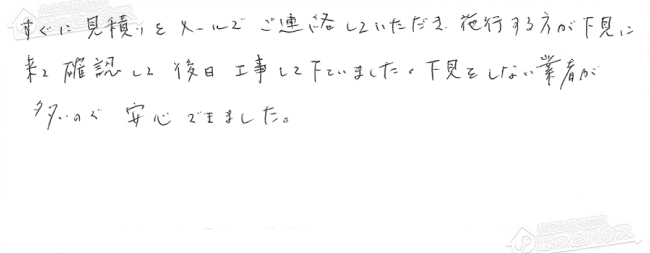 すぐに見積りをメールでご連絡していただき 施行する方が下見に
来て確認して後日工事して下さいました。下見をしない業者が
多いので 安心できました。